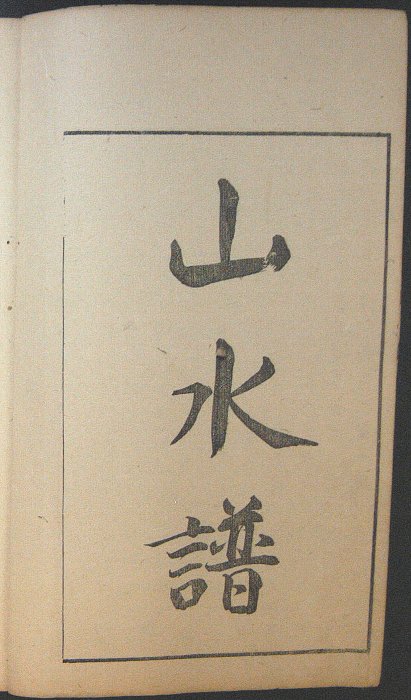 山水譜